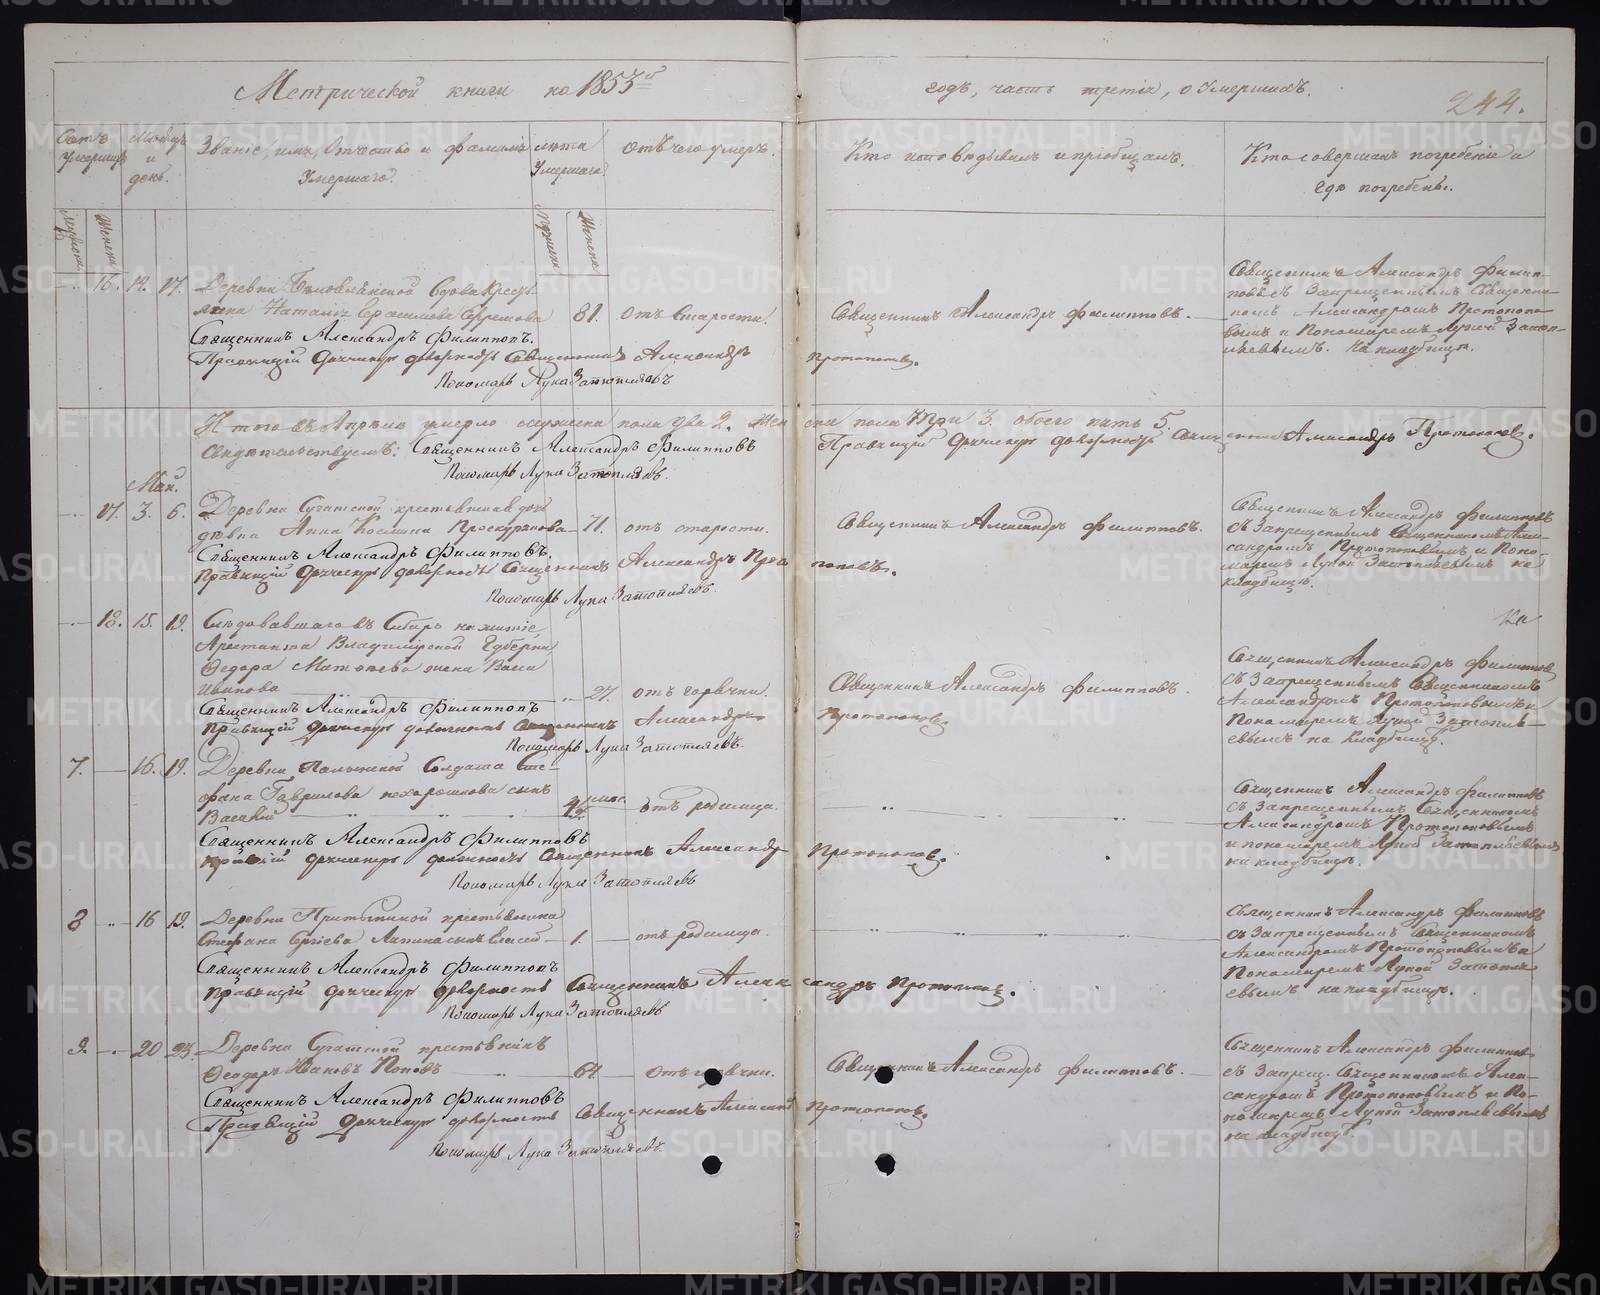 Метрической книги на 1853й годъ, часть третія, о Умершихъ.
244.
Счетъ Умершихъ
Мѣсяцъ и день.
Званіе, имя, Отчество и фамилія Умершаго.
лѣта Умершаго
Отъ чего умеръ.
Кто исповѣдывалъ и пріобщалъ.
Кто совершалъ погребеніе и гдѣ погребены.
Мужеска
Женска
Мужеска
Женска
16. 12. 17. Деревни
Вдова Кресть-
янка Наталія Ефремова 81. отъ Старости.
Священникъ Александръ Филипповъ.
Священникъ Александръ Филип-
повъ съ Запрещеннымъ Священни-
комъ Александромъ Протопопо-
вымъ и Пономаремъ Лукой Затоп-
ляевымъ. На кладбищѣ.
Священникъ Александръ Филипповъ.
Правящій должность Священникъ Александръ Протопоповъ.
Пономарь Лука Затопляевъ
Итого въ Апрѣлѣ умерло мужеска пола два 2. женска пола три 3. обоего пять 5.
Свидѣтельствуемъ: Священникъ Александръ Филипповъ
Правящій должность Священникъ Александръ Протопоповъ.
Пономарь Лука Затопляевъ.
Май.
17. 3. 6. Деревни Сугатской крестьянская
Анна Космина Проскурякова 71. отъ старости.
Священникъ Александръ Филипповъ.
Священникъ Александръ Филипповъ
съ Запрещеннымъ Священникомъ Алек-
сандромъ Протопоповымъ и Поно-
маремъ Лукой Затопляевымъ на
кладбищѣ.
Священникъ Александръ Филипповъ.
Правящій должность Священникъ Александръ Протопоповъ.
Пономарь Лука Затопляевъ.
18. 15. 19. Слѣдовавшаго въ Сибирь на житіе
Арестанта Владимірской Губерніи
Ѳедора Матвѣева жена Васса
Иванова 27. отъ горячки.
Священникъ Александръ Филипповъ.
Священникъ Александръ Филипповъ
съ Запрещеннымъ Священникомъ
Александромъ Протопоповымъ и
Пономаремъ Лукой Затопля-
евымъ на кладбищѣ.
Священникъ Александръ Филипповъ
Правящій должность Священникъ Александръ Протопоповъ
Пономарь Лука Затопляевъ.
7. 16. 19. Деревни Солдата Сте-
фана Гаврилова нехорошкова сынъ
Василій мѣс. отъ родимца.
Священникъ Александръ Филипповъ
съ Запрещеннымъ Священникомъ
Александромъ Протопоповымъ
и пономаремъ Лукой Затопляевымъ
на кладбищѣ.
Священникъ Александръ Филипповъ
Правящій должность Священникъ Александръ Протопоповъ.
Пономарь Лука Затопляевъ
8 16 19. Деревни Притыкиной крестьянина
Стефана Сергіева Лапина сынъ 1. отъ родимца.
Священникъ Александръ Филипповъ
съ Запрещеннымъ Священникомъ
Александромъ Протопоповымъ и
Пономаремъ Лукой Затопля-
евымъ на кладбищѣ.
Священникъ Александръ Филипповъ
Правящій должность Священникъ Александръ Протопоповъ.
Пономарь Лука Затопляевъ
9. 20 23. Деревни Сугатской крестьянинъ
Ѳеодоръ Ивановъ Поповъ 64. отъ горячки.
Священникъ Александръ Филипповъ.
Священникъ Александръ Филипповъ
съ Запрещ. Священникомъ Алек-
сандромъ Протопоповымъ и По-
номаремъ Лукой Затопляевымъ
на кладбищѣ.
Священникъ Александръ Филипповъ
Правящій должность Священникъ Александръ Протопоповъ
Пономарь Лука Затопляевъ.
METRIKI.GASO-URAL.RU